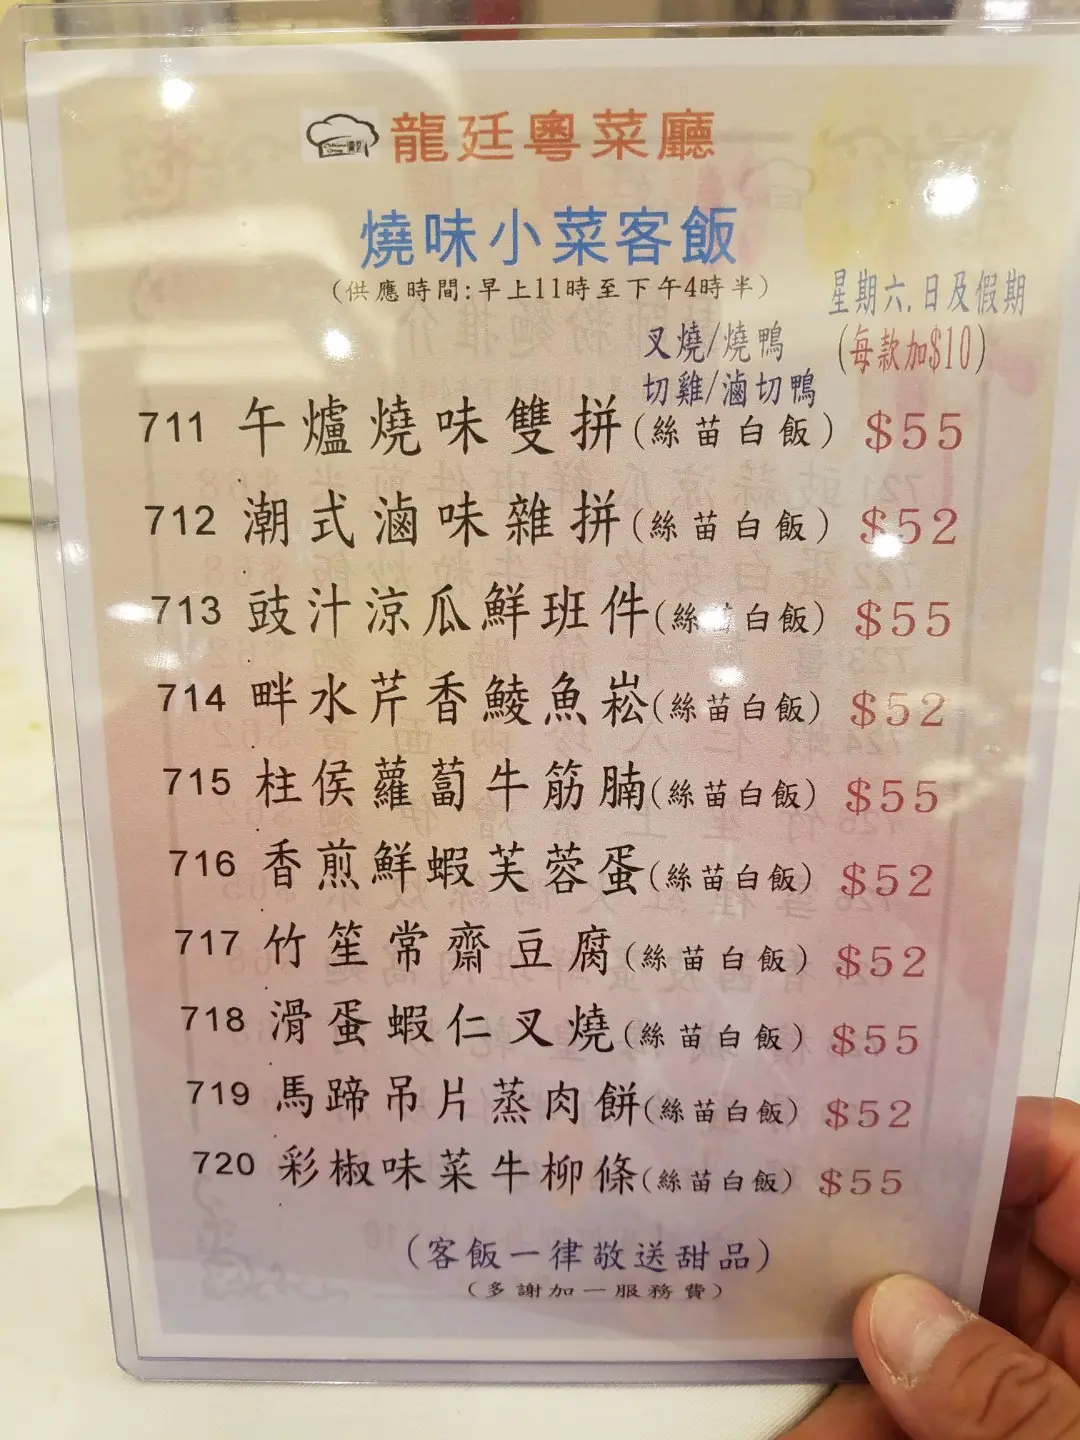 龍廷粵菜廳
燒味小菜客飯
(供應時間:早上11時至下午4時半)
星期六.日及假期
(每款加$10)
叉燒/燒鴨
切雞/滷切鴨
711 午爐燒味雙拼(絲苗白飯) $55
712 潮式滷味雜拼(絲苗白飯) $52
713 豉汁涼瓜鮮班件(絲苗白飯) $55
714 畔水芹香鯪魚崧(絲苗白飯) $52
715 柱侯蘿蔔牛筋腩(絲苗白飯) $55
716 香煎鮮蝦芙蓉蛋(絲苗白飯) $52
717 竹笙常齋豆腐(絲苗白飯) $52
718 滑蛋蝦仁叉燒(絲苗白飯) $55
719 馬蹄吊片蒸肉餅(絲苗白飯) $52
720 彩椒味菜牛柳條(絲苗白飯) $55
(客飯一律敬送甜品)
(多謝加一服務費)